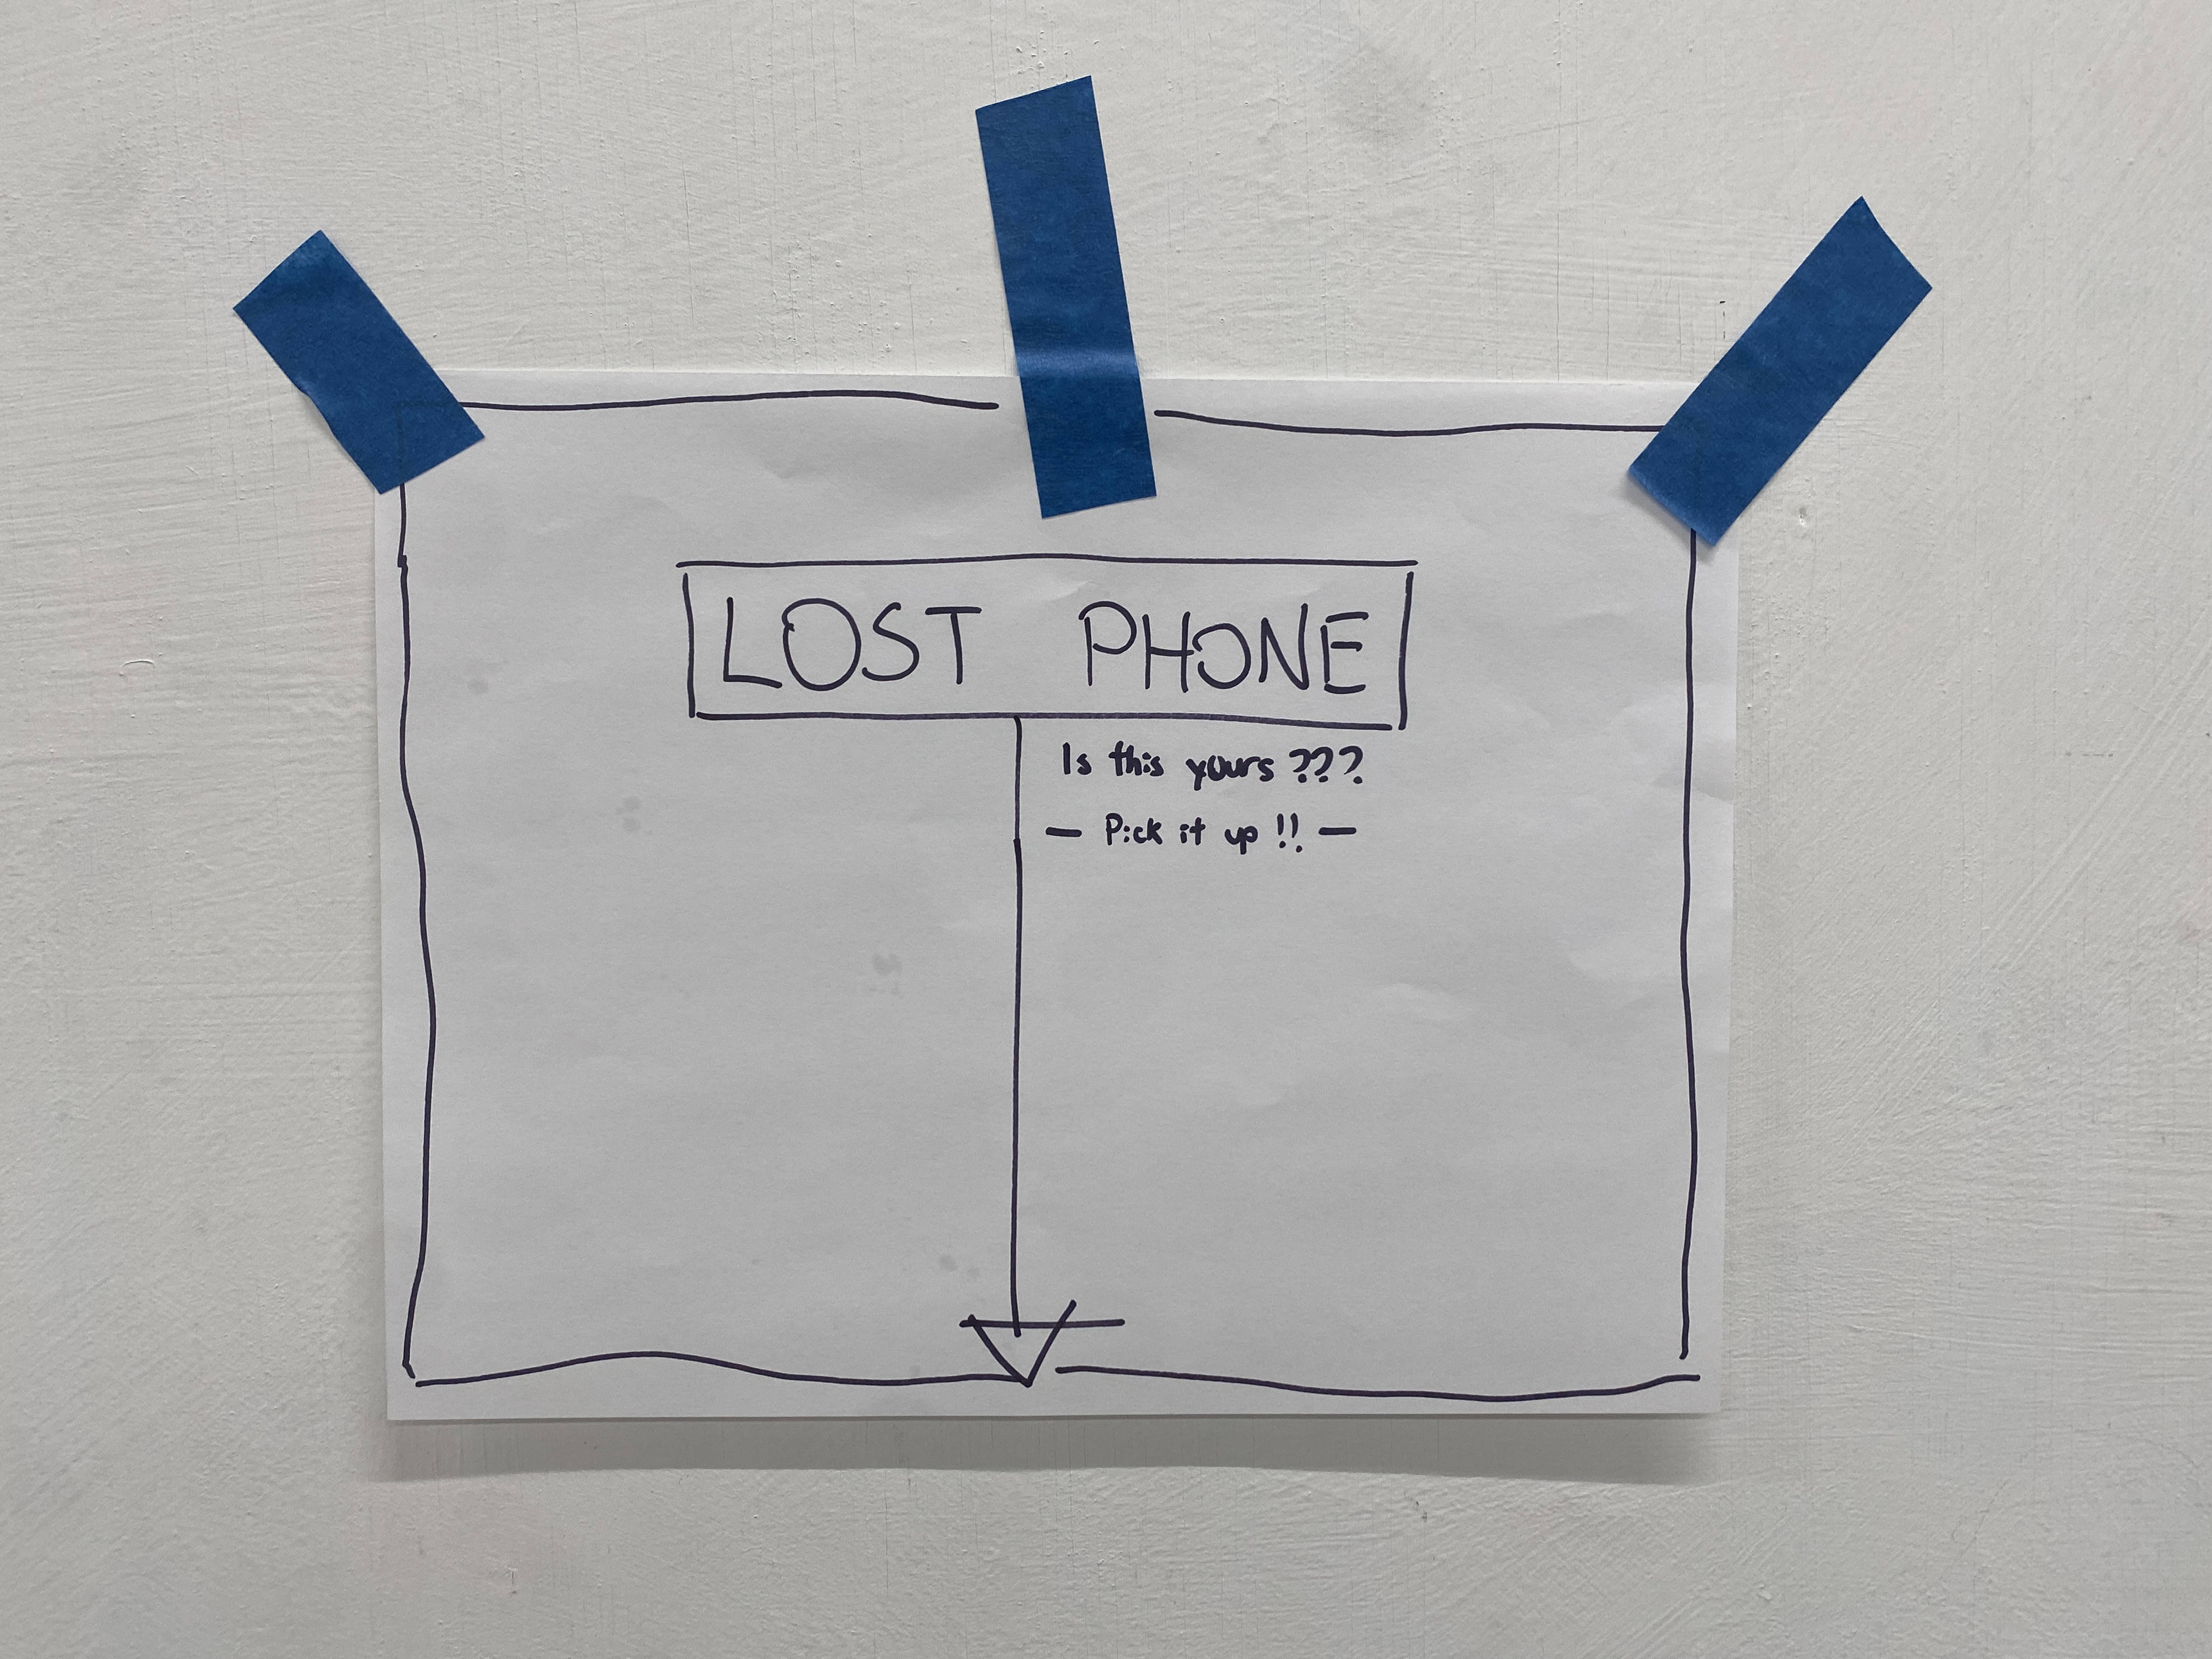 LOST PHONE
Is this yours ???
— Pick it up !! —